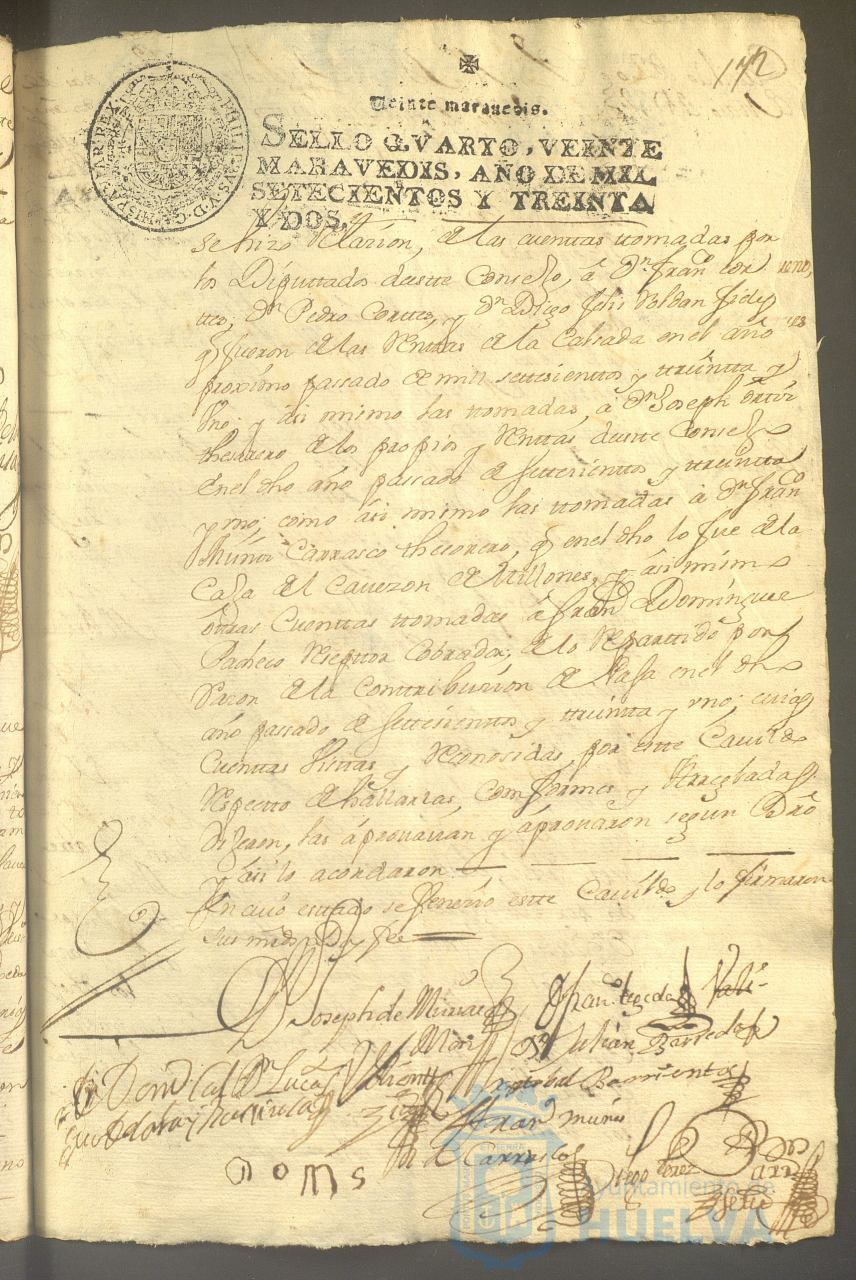 172
Veinte maravedis.
SELLO QVARTO, VEINTE
MARAVEDIS, AÑO DE MIL
SETECIENTOS Y TREINTA
Y DOS.
PHILIPPVS V D G HISPANIAR REX
se hizo de las cuentas ttomadas por
los Diputtados destte Consejo, á Dn. Fran.co
Dn. Pedro Corttes, y Dn. Diego Felis Roldan
q fueron de las Renttas de la Calsada en el año
proximo passado de mill settesienttos y ttreintta y
Vno; y asi mismo las ttomadas, á Dn. Joseph
thesorero de los propios y Renttas destte Consejo
en el dho año passado de settesienttos y ttreintta
y vno; como asi mismo las ttomadas á Dn. Fran.co
Muñiz Carrasco thesorero, q en el dho lo fue de la
Casa del Cavezon de Millones, y asi mismo
ottras Cuenttas ttomadas á Fran.co Dominguez
Pacheco Reseptor Cobrador, de lo Reparttido por
Razon de la Conttribusion de Paja en el dho
año passado de settesienttos y ttreintta y vno; cuias
Cuenttas Visttas y Reconosidas por estte Cavildo
Respecto de hallarlas, Comformes y Arregladas
Dijeron, las áprovavan y áprovaron segun Dro
y ási lo acordaron
En cuio esttado se feneció estte Cavildo y lo firmaron
sus mrds Doy fee
Joseph de
Dn. Julian Barreda
Dn. Lucas
Cristobal Barrientos
Fran.co Muñiz
Carrasco
Diego Perez
Ayuntamiento de
HUELVA